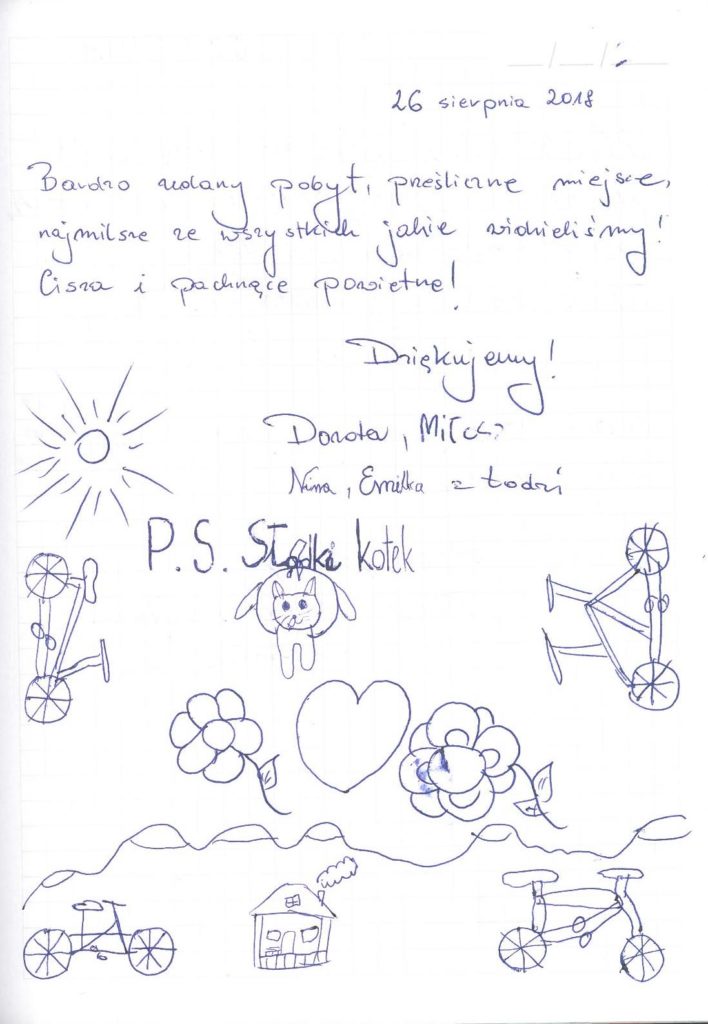 26 sierpnia 2018
Bardzo udany pobyt, prześliczne miejsce,
najmilsze ze wszystkich jakie widzieliśmy!
Cisza i pachnące powietrze!
Dziękujemy!
Dorota,
Nina, Emilka z Łodzi
P.S. Słodki kotek